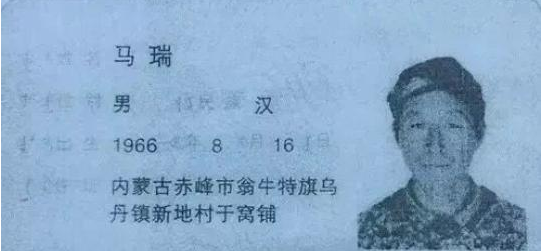 马瑞
男 汉
1966 8 16
内蒙古赤峰市翁牛特旗乌
丹镇新地村于窝铺